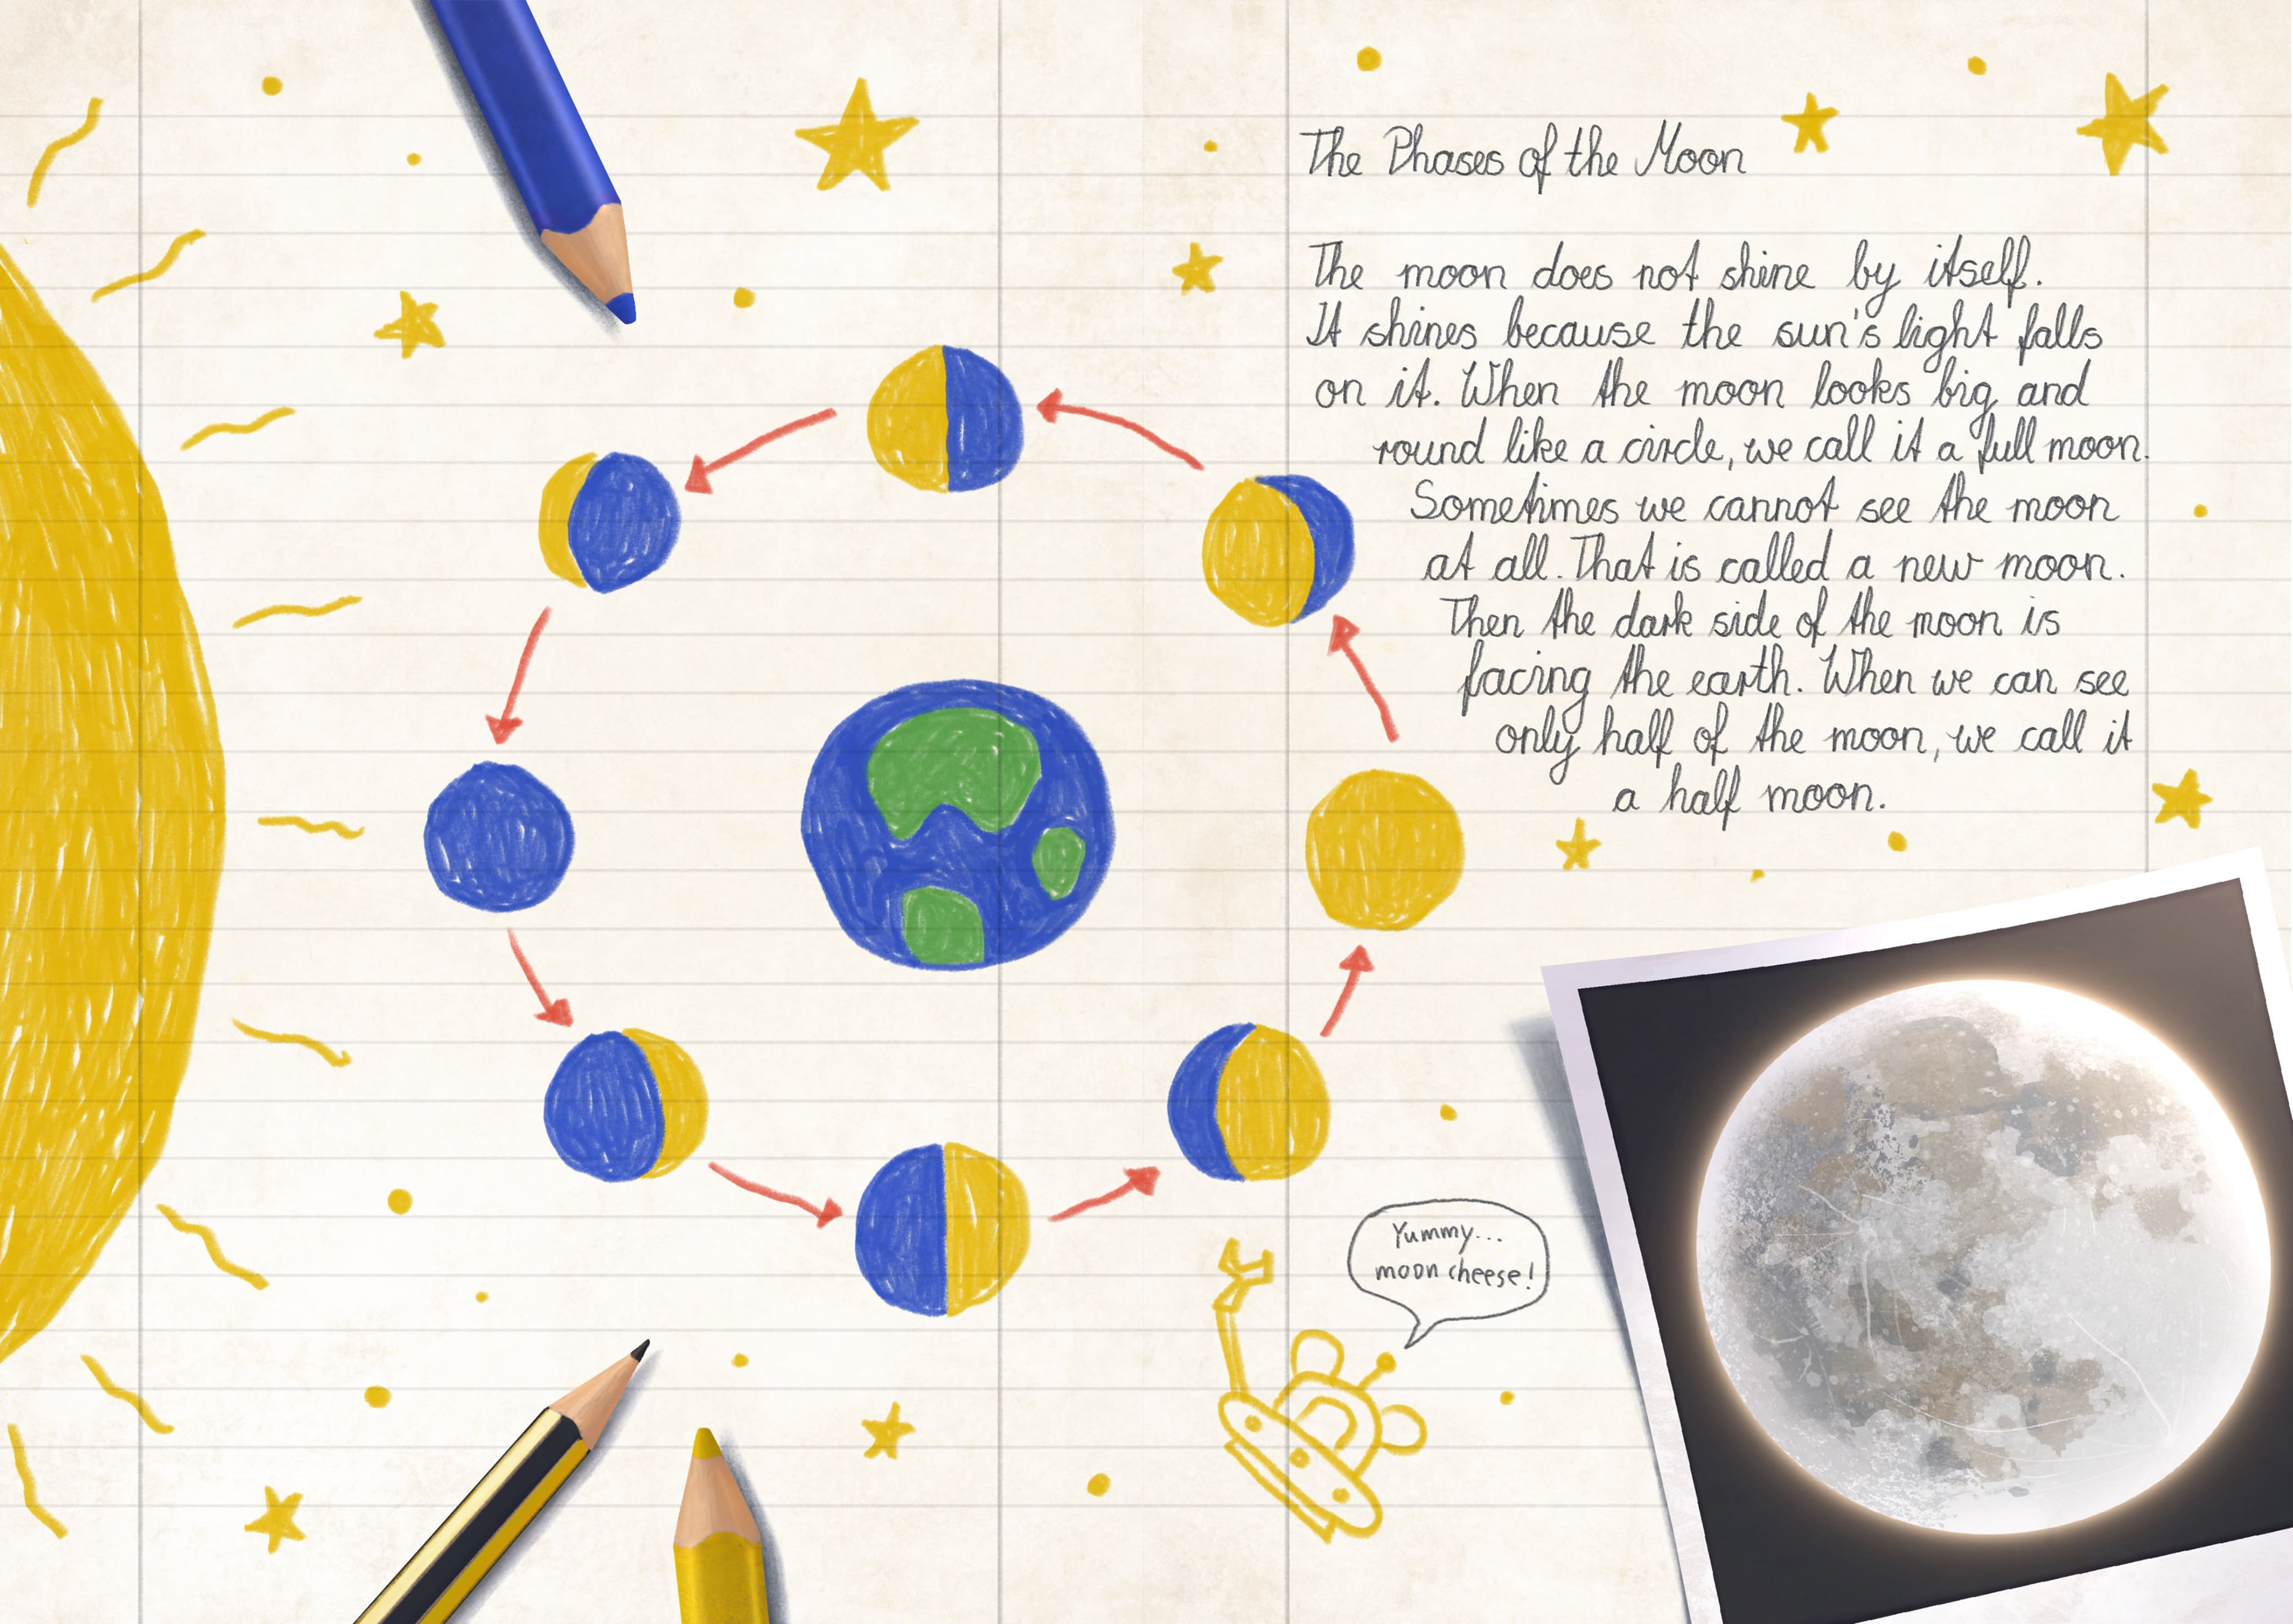 The Phases of the Moon
The moon does not shine by itself.
It shines because the sun's light falls
on it. When the moon looks big and
round like a circle, we call it a full moon.
Sometimes we cannot see the moon
at all. That is called a new moon.
Then the dark side of the moon is
facing the earth. When we can see
only half of the moon, we call it
a half moon.
Yummy...
moon cheese!